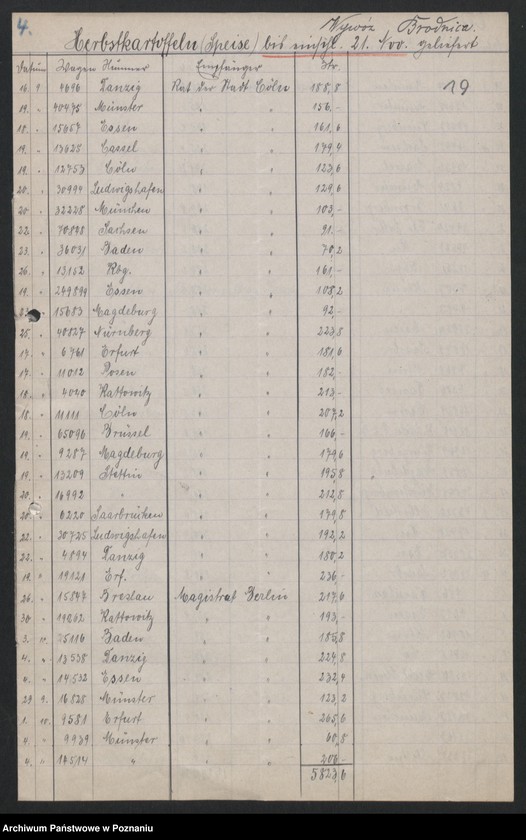 4.
Wywóz Brodnica.
Herbstkartoffeln (Speise) bis einschl. 21. Nov. geliefert
19
Datum Wagen Nummer Empfänger Ztr.
16. 9 4696 Danzig Rat der Stadt Cöln 188,8
19. " 40475 Münster " " 156,-
18. " 15657 Essen " " 161,6
19. " 13625 Cassel " " 179,4
19. " 12753 Cöln " " 123,6
20. " 30994 Ludwigshafen " " 129,6
20. " 32228 München " " 103,-
22. " 70898 Sachsen " " 91.-
23. " 36031 Baden " " 70,2
26. " 13162 Kbg. " " 161,-
19. " 249899 Essen " " 108,2
" 15683 Magdeburg " " 92,-
25. " 40827 Nürnberg " " 223,8
17. " 6761 Erfurt " " 181,6
17. " 11012 Posen " " 182,-
18. " 4040 Kattowitz " " 213,-
18. " 11111 Cöln " " 207,2
19. " 65096 Brüssel " " 166,-
19. " 9287 Magdeburg " " 179,6
19. " 13209 Stettin " " 195,8
20. " 16992 " " " 212,8
20. " 6220 Saarbrücken " " 179,8
22. " 30725 Ludwigshafen " " 192,2
22. " 4894 Danzig " " 180,2
19. " 19121 Erf. " " 236,-
26. " 15847 Breslau Magistrat Berlin 217,6
30. " Kattowitz " " 193,-
3. 10. 75116 Baden " " 185,8
4. " 13538 Danzig " " 224,8
4. " 14532 Essen " " 232,4
29. 9. 16828 Münster " " 123,2
1. 10. 9581 Erfurt " " 265,6
4. " 9939 Münster " " 60,8
4. " 14514 " " " 206,-
5823,6
Archiwum Państwowe w Poznaniu